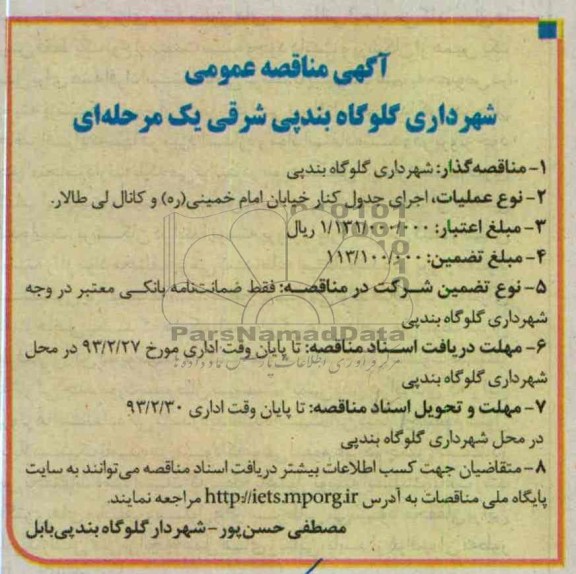 آگهی مناقصه عمومی
شهرداری گلوگاه بندپی شرقی یک مرحله‌ای
۱- مناقصه‌گذار: شهرداری گلوگاه بندپی
۲- نوع عملیات، اجرای جدول کنار خیابان امام خمینی(ره) و کانال لی طالار.
۳- مبلغ اعتبار: ۱/۱۳۱/۰۰۰/۰۰۰ ریال
۴- مبلغ تضمین: ۱۱۳/۱۰۰/۰۰۰
۵- نوع تضمین شرکت در مناقصه: فقط ضمانت‌نامه بانکی معتبر در وجه
شهرداری گلوگاه بندپی
ParsNamadData
۶- مهلت دریافت اسناد مناقصه: تا پایان وقت اداری مورخ ۹۳/۲/۲۷ در محل
شهرداری گلوگاه بندپی
۷- مهلت و تحویل اسناد مناقصه: تا پایان وقت اداری ۹۳/۲/۳۰
در محل شهرداری گلوگاه بندپی
۸- متقاضیان جهت کسب اطلاعات بیشتر دریافت اسناد مناقصه می‌توانند به سایت
پایگاه ملی مناقصات به آدرس http://iets.mporg.ir مراجعه نمایند.
مصطفی حسن‌پور - شهردار گلوگاه بندپی بابل